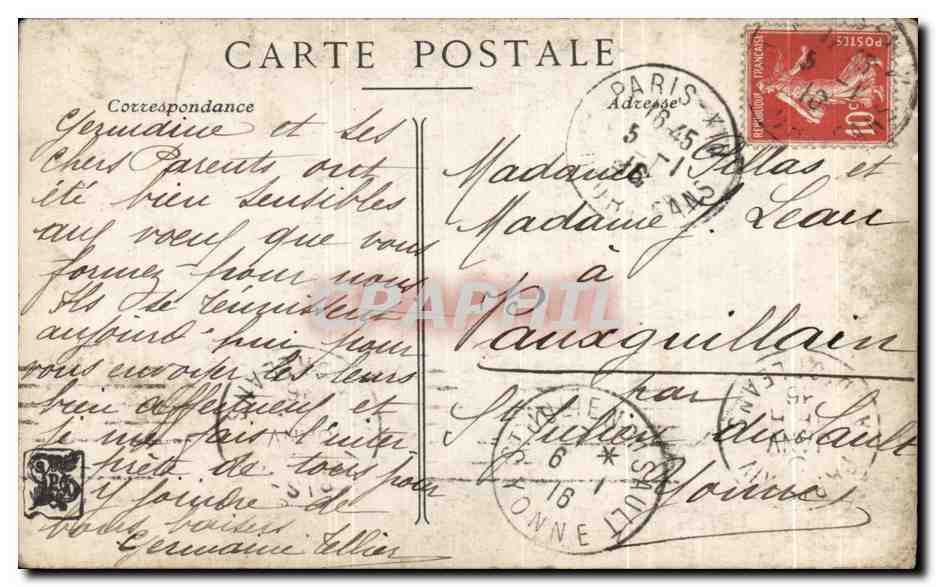 CARTE POSTALE
Correspondance
Germaine et Ses
chers Parents ont
été bien Sensibles
aux voeux que vous
formez pour nous
Ils Se réunissent
aujourd'hui pour
vous envoyer les leurs
bien affectueux et
je me fais l'inter
prète de tous pour
y joindre de
bons baisers
Germaine Tellier
Adresse
Madame Pillas et
Madame J. Leau
à
Vauxguillain
par
St Julien du Sault
Yonne
PARIS-XI
16 45
5 - 1
16
REPUBLIQUE FRANÇAISE
POSTES
10c
ST JULIEN DU SAULT
6 * 1
16
YONNE
CPAPHIL